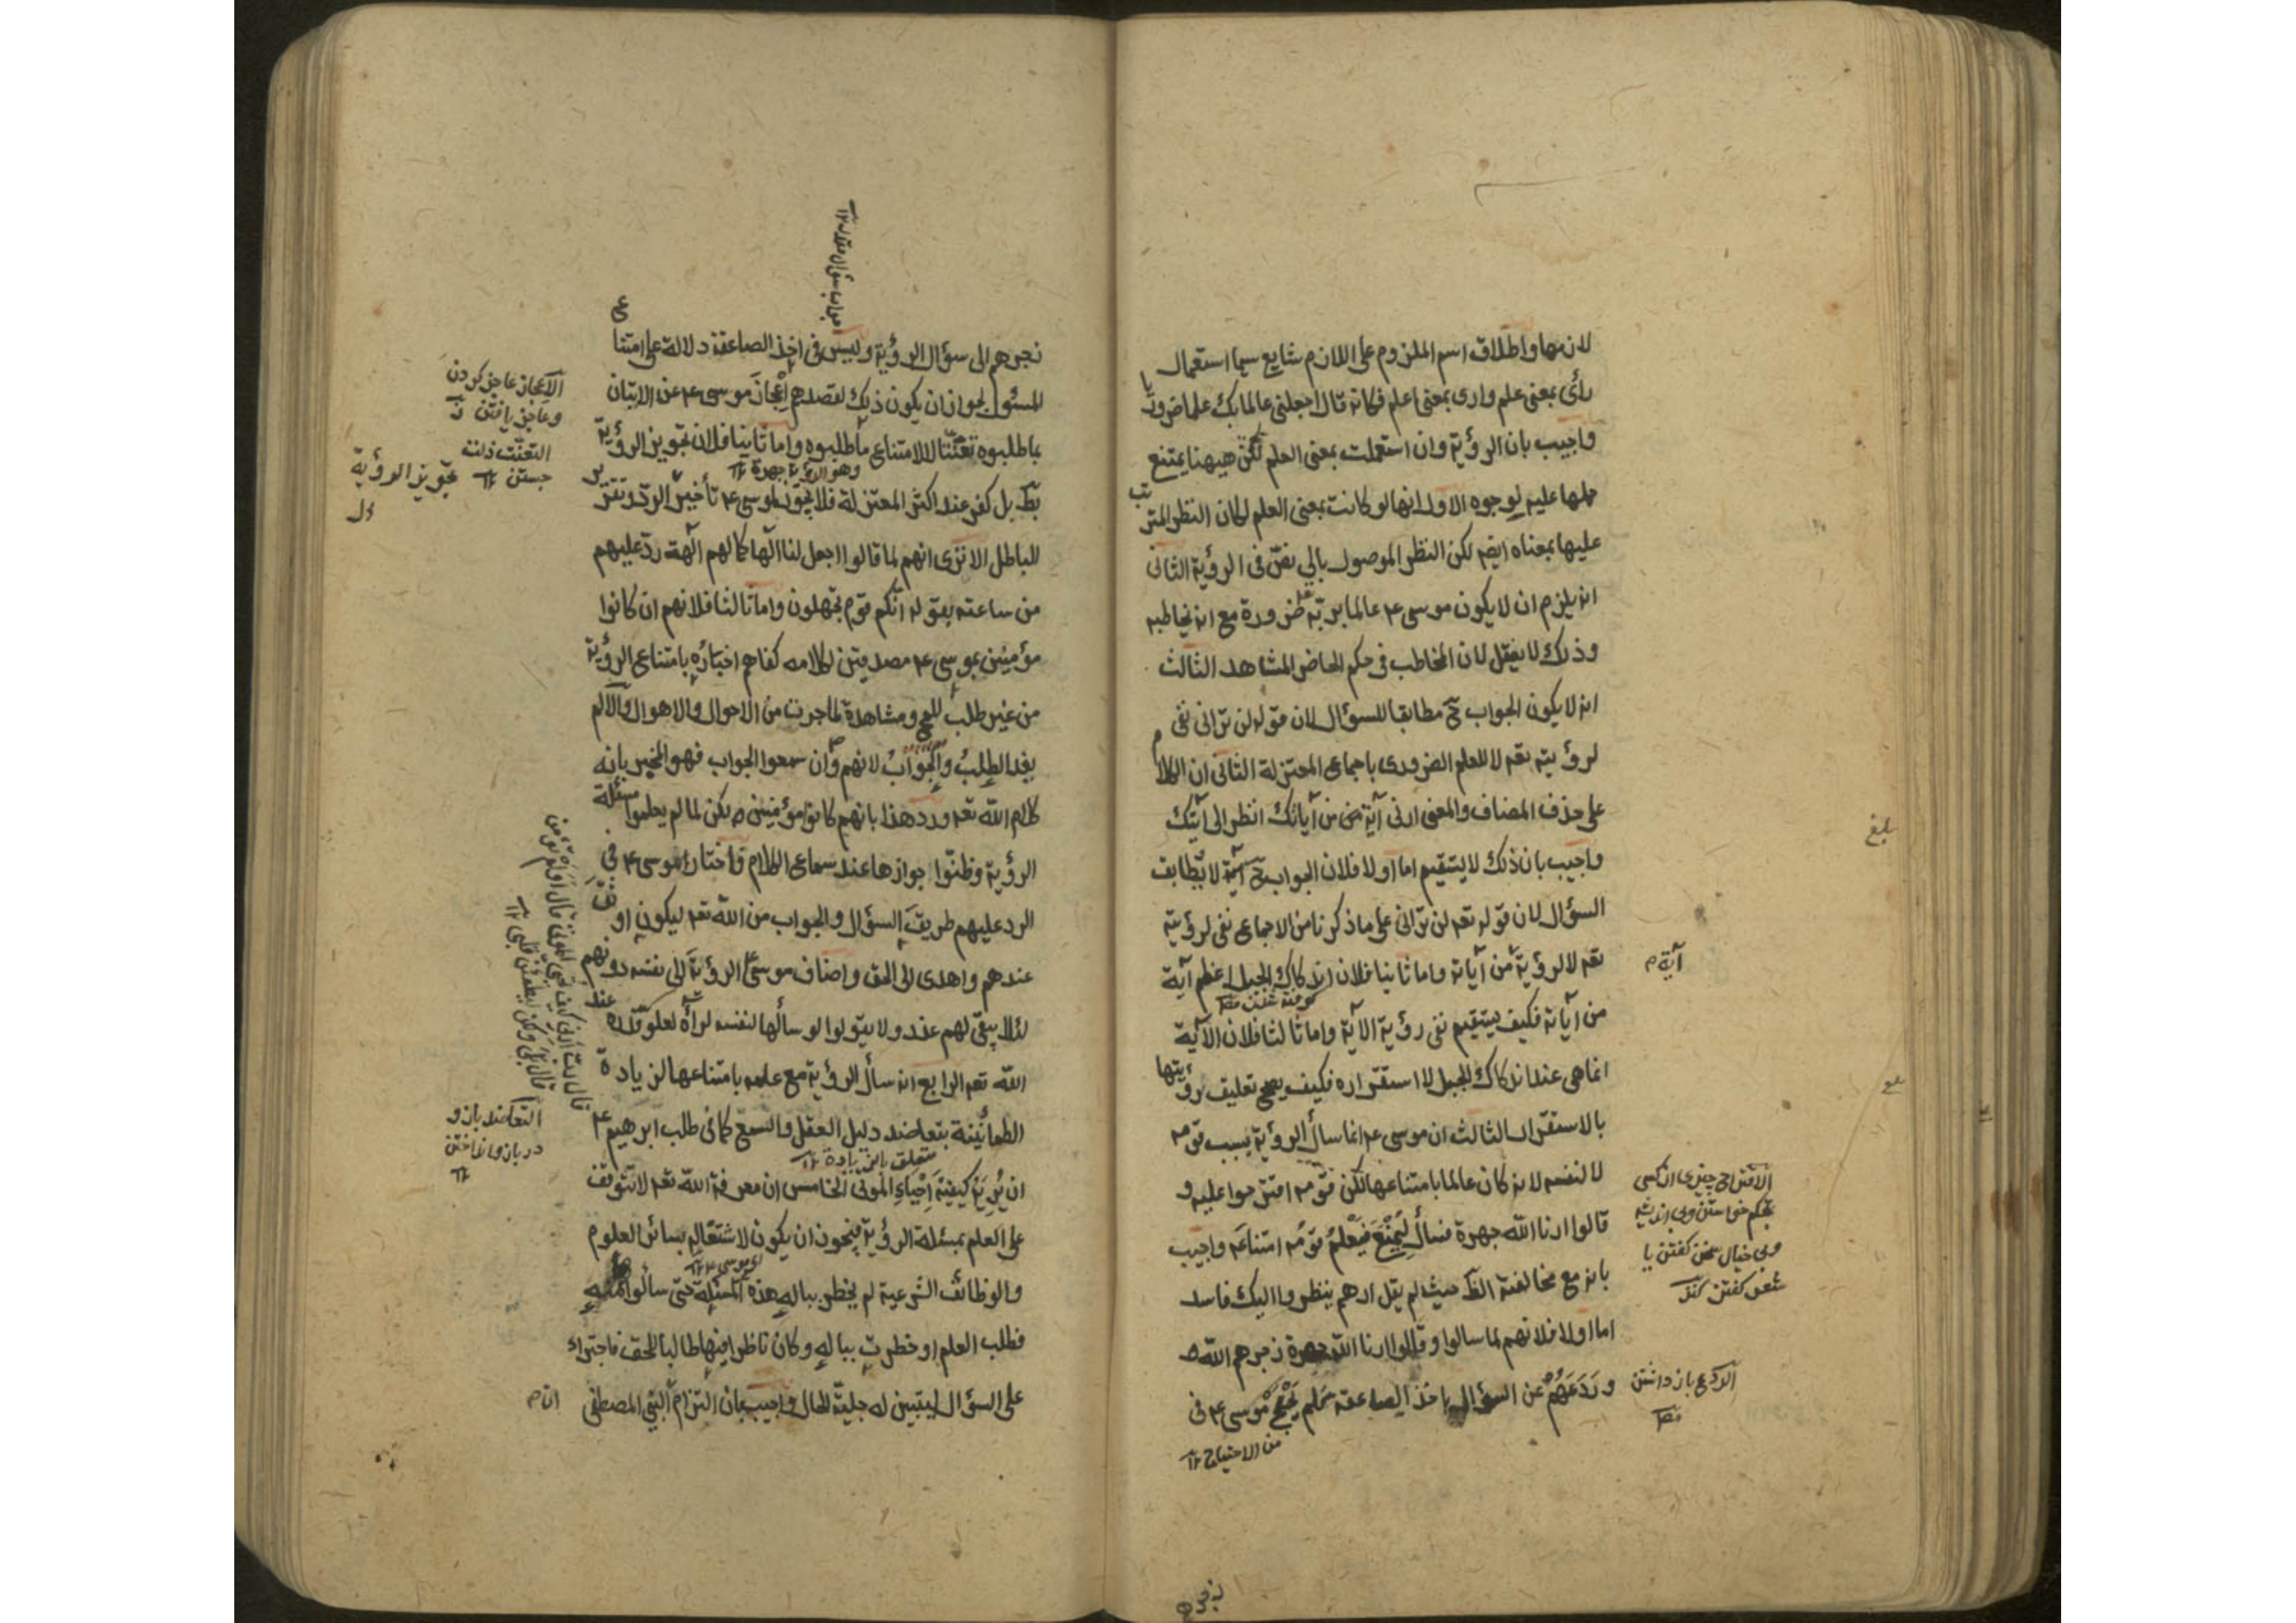 لازمها واطلاق اسم الملزوم على اللازم شايع سيما استعمال
رأى بمعنى علم وارى بمعنى اعلم فكانه قال اجعلني عالما بك علما ضروريا
واجيب بان الرؤية وان استعملت بمعنى العلم لكن ههنا يمتنع
حملها عليه لوجوه الاول انها لو كانت بمعنى العلم لكان النظر المترتب
عليها بمعناه ايضه لكن النظر الموصول بالى نص في الرؤية الثانى
انه يلزم ان لا يكون موسى ع عالما بربه ضرورة مع انه يخاطبه
وذلك لا يعقل لان المخاطب في حكم الحاضر المشاهد الثالث
انه لا يكون الجواب ح مطابقا للسؤال لان قوله لن تراني نفى
لرؤيته تعه لا للعلم الضرورى باجماع المعتزلة الثانى ان الكلام
على حذف المضاف والمعنى ارنى آية من آياتك انظر الى آيتك
واجيب بان ذلك لا يستقيم اما اولا فلان الجواب ح لا يطابق
السؤال لان قوله تعه لن تراني على ما ذكرنا من الاجماع نفى لرؤيته
تعه لا لرؤية من آياته واما ثانيا فلان اندكاك الجبل اعظم آية
آية م
من آياته فكيف يستقيم نفى رؤية الآية واما ثالثا فلان الآية
انما هى عند اندكاك الجبل لا استقراره فكيف يصح تعليق رؤيتها
بالاستقرار الثالث ان موسى ع انما سأل الرؤية بسبب قومه
لا لنفسه لانه كان عالما بامتناعها لكن قومه اقترحوا عليه و
قالوا ارنا الله جهرة فسأل ليمنع فيعلم قومه امتناعه واجيب
بانه مع مخالفته الظ حيث لم يقل ارهم ينظروا اليك فاسد
اما اولا فلانهم لما سالوا وقالوا ارنا الله جهرة زجرهم الله
وردعهم عن السؤال باخذ الصاعقة فلم يحتج موسى ع في
من الاحتياج ١٢
الاقتراح چيزى از كسى
بتحكم خواستن وبى انديشه
وبى خيال سخن كفتن يا
شعر كفتن
الردع باز داشتن
بلغ
زجرهم
جواب سؤال مقدر ١٢
زجرهم الى سؤال الرؤية وليس في اخذ الصاعقة دلالة على امتناع
المسئول لجواز ان يكون ذلك لقصدهم اعجاز موسى ع عن الاتيان
بما طلبوه تعنتا لا لامتناع ما طلبوه واما ثانيا فلان تجويز الرؤية
وهو الرؤية جهرة ١٢
بط بل كفر عند اكثر المعتزلة فلا يجوز لموسى ع تأخير الرد وتقرير
للباطل الا ترى انهم لما قالوا اجعل لنا الها كما لهم الهة رد عليهم
من ساعته بقوله انكم قوم تجهلون واما ثالثا فلانهم ان كانوا
مؤمنين بموسى ع مصدقين لكلامه كفاهم اخباره بامتناع الرؤية
من غير طلب للمح ومشاهدة لما جرت من الاحوال والاهوال والا لم
يفد الطلب والجواب لانهم وان سمعوا الجواب فهو المخبر بانه
كلام الله تعه ورد هذا بانهم كانوا مؤمنين لكن لما لم يعلموا مسئلة
الرؤية وظنوا جوازها عند سماع الكلام واختار موسى ع في
الرد عليهم طريق السؤال والجواب من الله تعه ليكون اوثق
عندهم واهدى الى الحق واضاف موسى الرؤية الى نفسه دونهم
لئلا يبقى لهم عذر ولا يقولوا لو سألها لنفسه لرأه لعلو قدره عند
الله تعه الرابع انه سأل الرؤية مع علمه بامتناعها لزيادة
الطمأنينة بتعاضد دليل العقل والسمع كما في طلب ابرهيم ع
متعلق بالزيادة ١٢
ان يريه كيفية احياء الموتى الخامس ان معرفة الله تعه لا تتوقف
على العلم بمسئلة الرؤية فيجوز ان يكون لاشتغاله بسائر العلوم
اى موسى ع ١٢
والوظائف الشرعية لم يخطر بباله هذه المسئلة حتى سالوا منه
فطلب العلم او خطرت بباله وكان ناظرا فيها طالبا للحق فاجتراء
على السؤال ليتبين له جلية الحال واجيب بان التزام النبي المصطفى
الاعجاز عاجز كردن
وعاجز يافتن
التعنت ذلت
جستن ١٢
تجويز الرؤية
قال رب ارنى كيف تحيى الموتى قال اولم تؤمن
قال بلى ولكن ليطمئن قلبى ١٢
التعاضد بازو
در بازو انداختن
١٢